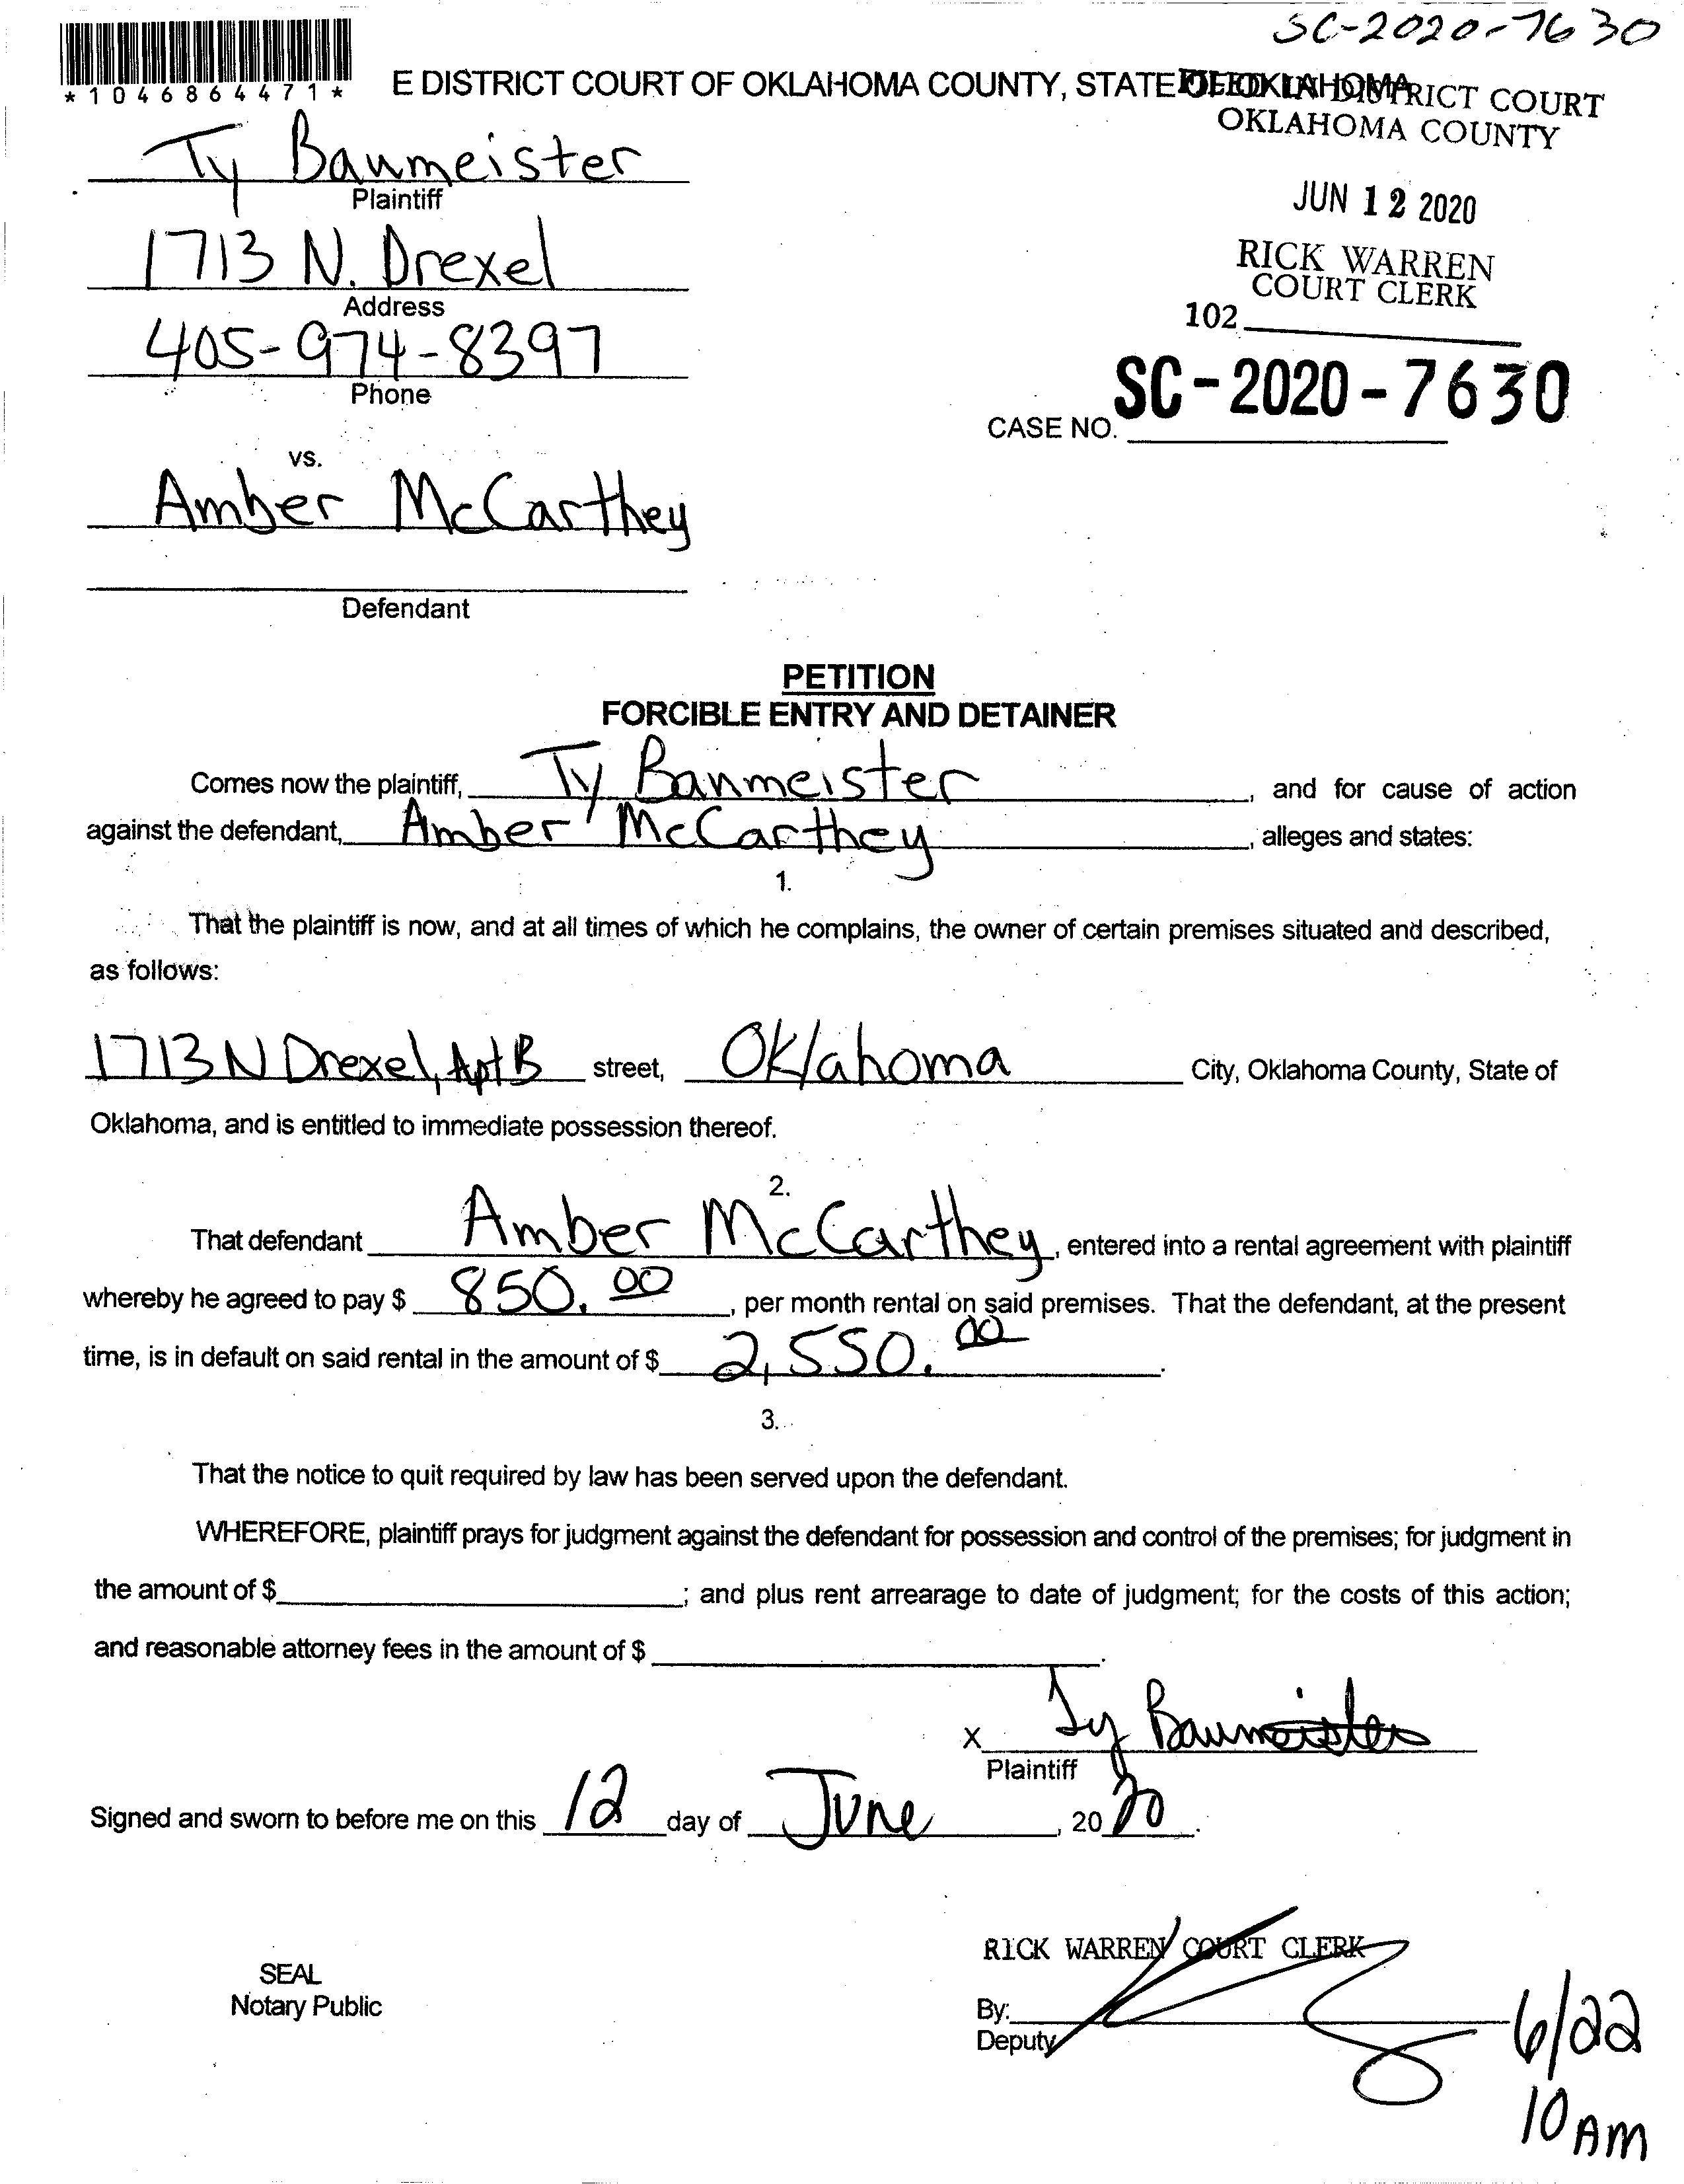 SC-2020-7630
*1046864471*
E DISTRICT COURT OF OKLAHOMA COUNTY, STATE OF OKLAHOMA
FILED IN DISTRICT COURT
OKLAHOMA COUNTY
Ty Baumeister
Plaintiff
JUN 12 2020
1713 N. Drexel
Address
RICK WARREN
COURT CLERK
102
405-974-8397
Phone
CASE NO. SC-2020-7630
vs.
Amber McCarthey
Defendant
PETITION
FORCIBLE ENTRY AND DETAINER
Comes now the plaintiff, Ty Baumeister, and for cause of action
against the defendant, Amber McCarthey, alleges and states:
1.
That the plaintiff is now, and at all times of which he complains, the owner of certain premises situated and described,
as follows:
1713 N Drexel, Apt B street, Oklahoma City, Oklahoma County, State of
Oklahoma, and is entitled to immediate possession thereof.
2.
That defendant Amber McCarthey, entered into a rental agreement with plaintiff
whereby he agreed to pay $ 850.00, per month rental on said premises. That the defendant, at the present
time, is in default on said rental in the amount of $ 2,550.00.
3.
That the notice to quit required by law has been served upon the defendant.
WHEREFORE, plaintiff prays for judgment against the defendant for possession and control of the premises; for judgment in
the amount of $ ; and plus rent arrearage to date of judgment; for the costs of this action;
and reasonable attorney fees in the amount of $ .
X Ty Baumeister
Plaintiff
Signed and sworn to before me on this 12 day of June, 2020.
RICK WARREN COURT CLERK
SEAL
Notary Public
By:
Deputy
6/22
10 AM